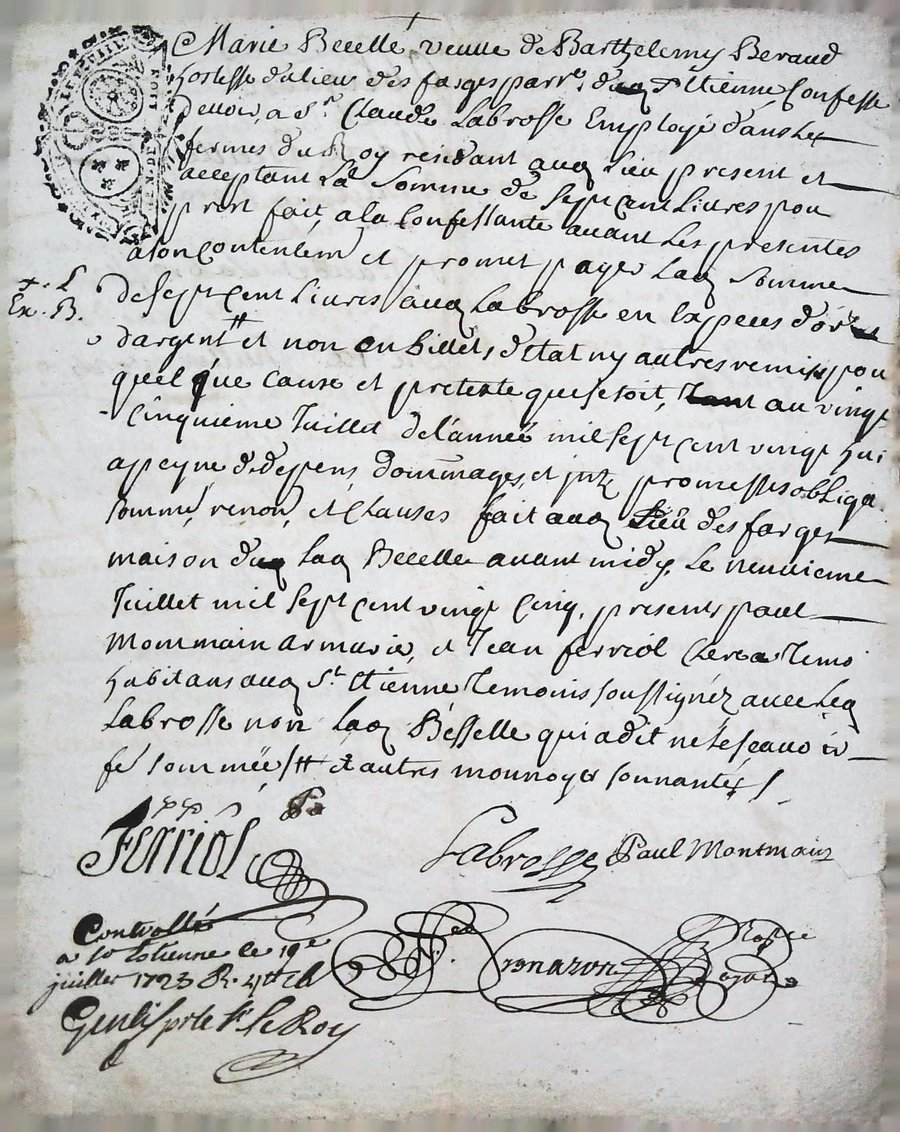 Marie Becelle veuve de Barthelemy Beraud
hostesse du lieu des farges parr.e du q St Etienne, Confesse
Devoir, a Sr. Claude Labrosse Employé dans les
fermes du Roy residant aud. Lieu present et
acceptant La Somme de Sept Cent Livres pou
prest fait, a la Confessante avant Les presentes
a son Contentem.t et promet payer Lad. Somme
de Sept Cent Livres aud. Labrosse en Especes d'or
dargent # et non en billets d'Etat ny autres remis, pou
quelque Cause et pretexte que se soit, au vingt
Cinquieme Juillet de l'année mil Sept Cent vingt hui
a peyne de depens, dommages, et promesses obliga.
Somme, renon, et Clauses fait aud. Lieu des farges
maison de lad. Becelle avant midy, Le neuvieme
Juillet mil Sept Cent vingt Cinq, presents paul
Montmain armurier, et Jean ferriol Clerc a
habitans aud. St. Etienne Temoins Soussignéz avec Led.
Labrosse non Lad. Bésselle qui a dit ne le Scavoir
Sommée /# et autres monnoyes Sonnantes /
Ferriol
Labrosse
Paul Montmain
Controllé
a St Estienne le 19e
juillet 1725 R. 4tt
Le Roy